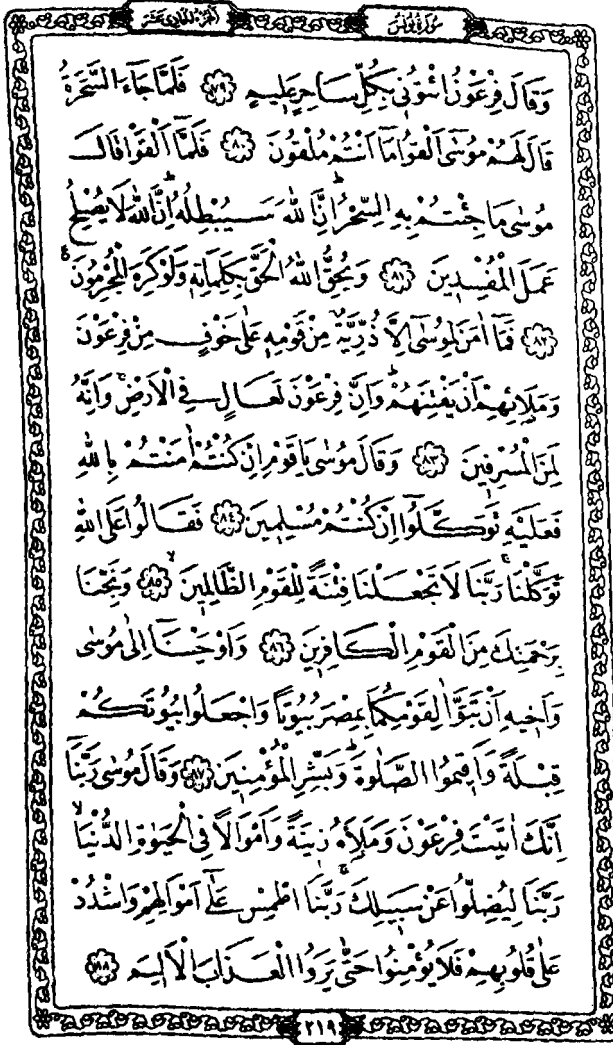 الجزء الحادي عشر
سورة يونس
وَقَالَ فِرْعَوْنُ ائْتُونِي بِكُلِّ سَاحِرٍ عَلِيمٍ ﴿٧٩﴾ فَلَمَّا جَاءَ السَّحَرَةُ
قَالَ لَهُمْ مُوسٰى اَلْقُوا مَا اَنْتُمْ مُلْقُونَ ﴿٨٠﴾ فَلَمَّا اَلْقَوْا قَالَ
مُوسٰى مَا جِئْتُمْ بِهِ السِّحْرُ اِنَّ اللهَ سَيُبْطِلُهُ اِنَّ اللهَ لَا يُصْلِحُ
عَمَلَ الْمُفْسِدِينَ ﴿٨١﴾ وَيُحِقُّ اللهُ الْحَقَّ بِكَلِمَاتِهِ وَلَوْ كَرِهَ الْمُجْرِمُونَ
﴿٨٢﴾ فَمَا اٰمَنَ لِمُوسٰى اِلَّا ذُرِّيَّةٌ مِنْ قَوْمِهِ عَلٰى خَوْفٍ مِنْ فِرْعَوْنَ
وَمَلَائِهِمْ اَنْ يَفْتِنَهُمْ وَاِنَّ فِرْعَوْنَ لَعَالٍ فِي الْاَرْضِ وَاِنَّهُ
لَمِنَ الْمُسْرِفِينَ ﴿٨٣﴾ وَقَالَ مُوسٰى يَا قَوْمِ اِنْ كُنْتُمْ اٰمَنْتُمْ بِاللهِ
فَعَلَيْهِ تَوَكَّلُوا اِنْ كُنْتُمْ مُسْلِمِينَ ﴿٨٤﴾ فَقَالُوا عَلَى اللهِ
تَوَكَّلْنَا رَبَّنَا لَا تَجْعَلْنَا فِتْنَةً لِلْقَوْمِ الظَّالِمِينَ ﴿٨٥﴾ وَنَجِّنَا
بِرَحْمَتِكَ مِنَ الْقَوْمِ الْكَافِرِينَ ﴿٨٦﴾ وَاَوْحَيْنَا اِلٰى مُوسٰى
وَاَخِيهِ اَنْ تَبَوَّاٰ لِقَوْمِكُمَا بِمِصْرَ بُيُوتًا وَاجْعَلُوا بُيُوتَكُمْ
قِبْلَةً وَاَقِيمُوا الصَّلٰوةَ وَبَشِّرِ الْمُؤْمِنِينَ ﴿٨٧﴾ وَقَالَ مُوسٰى رَبَّنَا
اِنَّكَ اٰتَيْتَ فِرْعَوْنَ وَمَلَاَهُ زِينَةً وَاَمْوَالًا فِي الْحَيٰوةِ الدُّنْيَا
رَبَّنَا لِيُضِلُّوا عَنْ سَبِيلِكَ رَبَّنَا اطْمِسْ عَلٰى اَمْوَالِهِمْ وَاشْدُدْ
عَلٰى قُلُوبِهِمْ فَلَا يُؤْمِنُوا حَتّٰى يَرَوُا الْعَذَابَ الْاَلِيمَ ﴿٨٨﴾
٢١٩